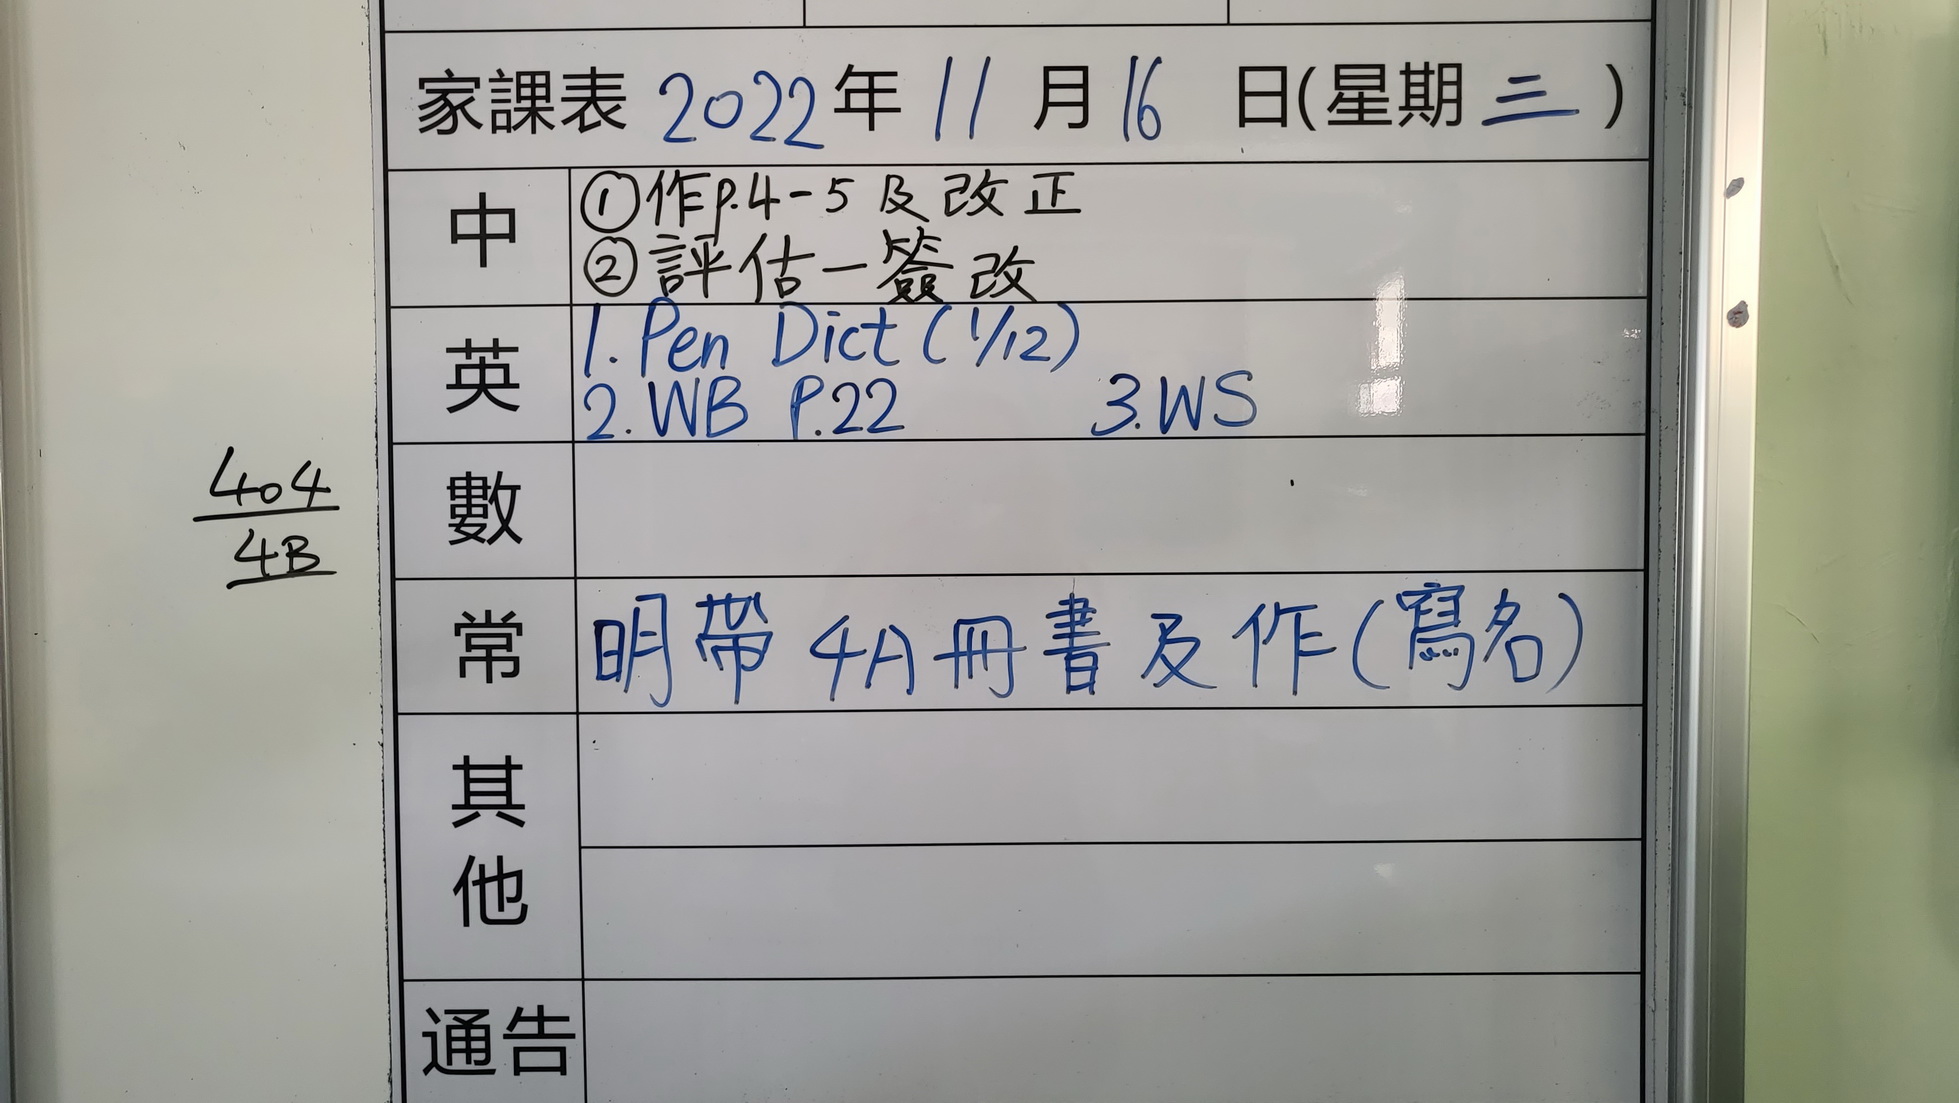 家課表 2022年 11月 16日(星期三)
中
①作p.4-5及改正
②評估一簽改
英
1. Pen Dict (1/12)
2. WB P.22 3. WS
404
4B
數
常
明帶4A冊書及作(寫名)
其他
通告